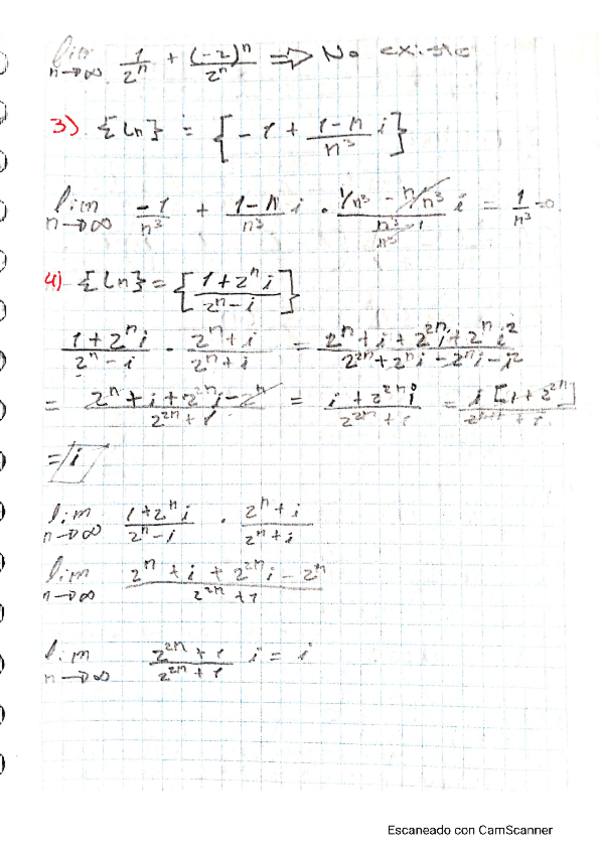 lim n→∞ 1/2^n + (-2)^n/2^n ⇒ No existe
3) {Ln} = {-1 + (1-n)/n^3 i}
lim n→∞ -1/n^3 + (1-n)/n^3 i · (1/n^3 - n/n^3)/(n^3/n^3 - 1) i = 1/n^3 = 0
4) {Ln} = {(1+2^n i)/(2^n - i)}
(1+2^n i)/(2^n - i) · (2^n + i)/(2^n + i) = (2^n + i + 2^{2n} i + 2^n i^2)/(2^{2n} + 2^n i - 2^n i - i^2)
= (2^n + i + 2^{2n} i - 2^n)/(2^{2n} + 1) = (i + 2^{2n} i)/(2^{2n} + 1) = i[1 + 2^{2n}]/(2^{2n} + 1)
= i
lim n→∞ (1+2^n i)/(2^n - i) · (2^n + i)/(2^n + i)
lim n→∞ (2^n + i + 2^{2n} i - 2^n)/(2^{2n} + 1)
lim n→∞ (2^{2n} + 1)/(2^{2n} + 1) i = i
Escaneado con CamScanner